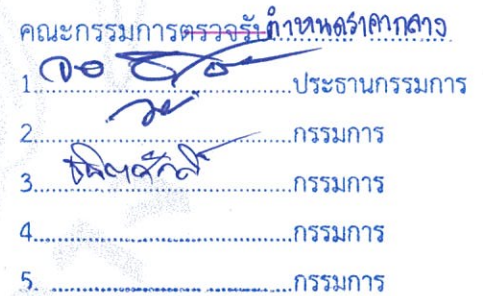 คณะกรรมการตรวจรับกำหนดราคากลาง
1. ประธานกรรมการ
2. กรรมการ
3. ธนิตศักดิ์ กรรมการ
4. กรรมการ
5. กรรมการ